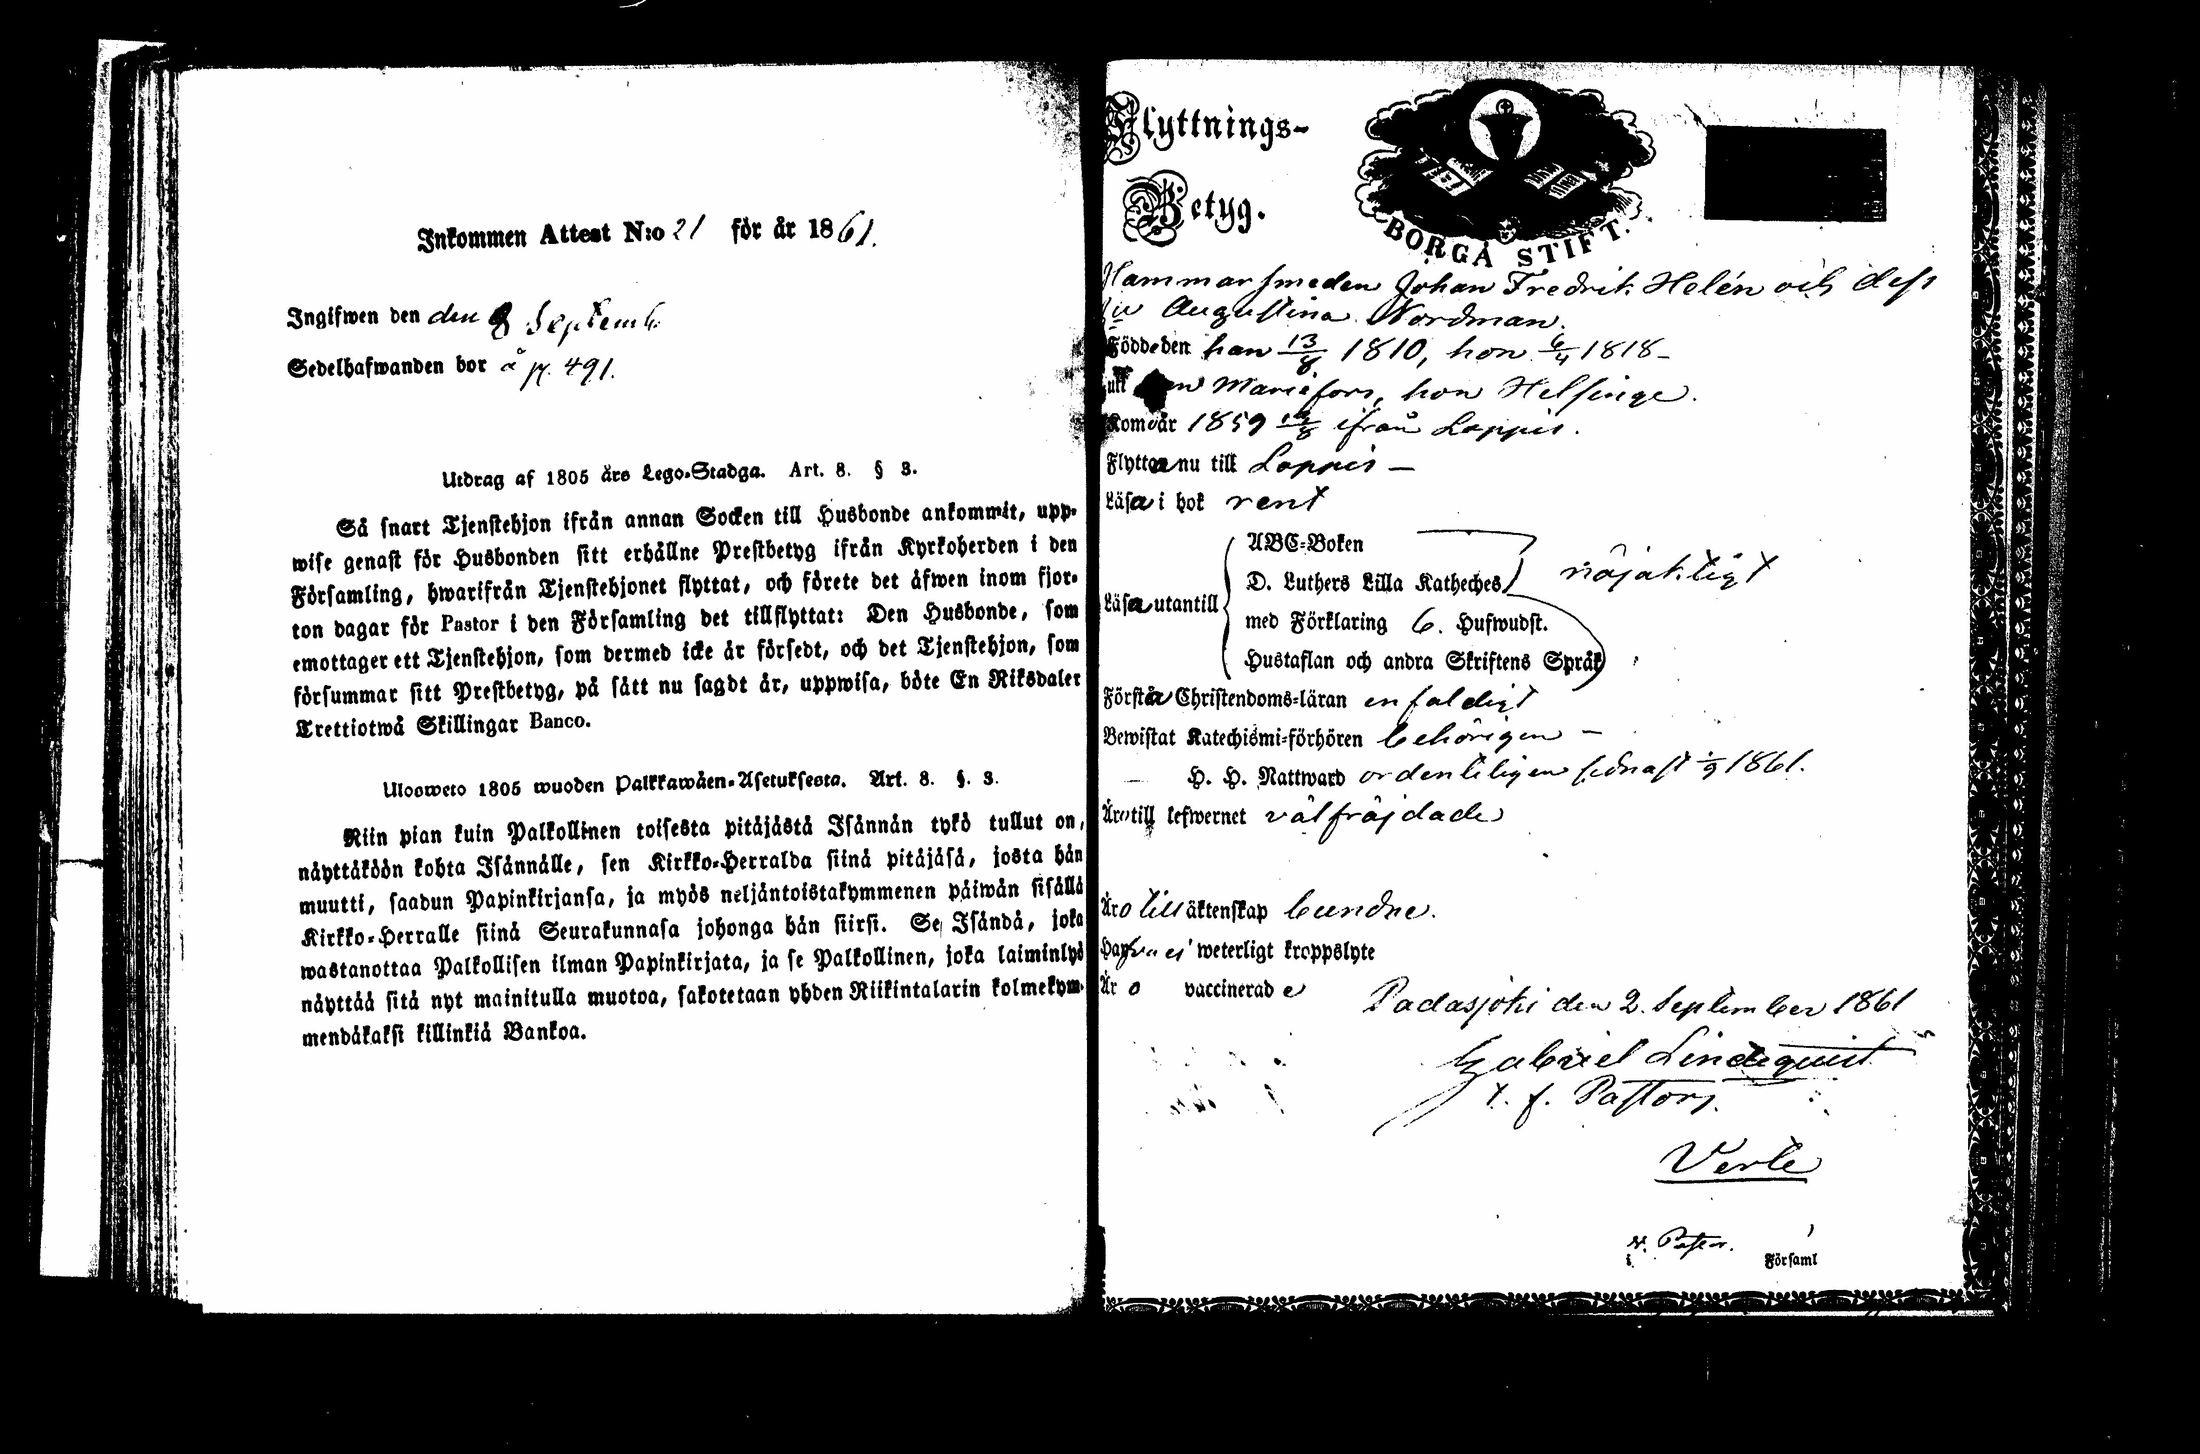 Inkommen Attest N:o 21 för år 1861.
Ingifwen den den 8 Septemb.
Sedelhafwanden bor å p. 491.
Utdrag af 1805 års Lego-Stadga. Art. 8. § 3.
Så snart Tjenstehjon ifrån annan Socken till Husbonde ankommit, upp-
wise genast för Husbonden sitt erhållne Prestbetyg ifrån Kyrkoherden i den
Församling, hwarifrån Tjenstehjonet flyttat, och förete det äfwen inom fjor-
ton dagar för Pastor i den Församling det tillflyttat: Den Husbonde, som
emottager ett Tjenstehjon, som dermed icke är försedt, och det Tjenstehjon, som
försummar sitt Prestbetyg, på sätt nu sagdt är, uppwisa, böte En Riksdaler
Trettiotwå Skillingar Banco.
Ulosweto 1805 wuoden Palkkawäen-Asetuksesta. Art. 8. §. 3.
Niin pian kuin Palkollinen toisesta pitäjästä Isännän tykö tullut on,
näyttäköön kohta Isännälle, sen Kirkko-Herralda siinä pitäjäsä, josta hän
muutti, saadun Papinkirjansa, ja myös neljäntoistakymmenen päiwän sisällä
Kirkko-Herralle siinä Seurakunnasa johonga hän siirsi. Se Isändä, joka
wastanottaa Palkollisen ilman Papinkirjata, ja se Palkollinen, joka laiminlyö
näyttää sitä nyt mainitulla muotoa, sakotetaan yhden Riikintalarin kolmekym-
mendäkaksi killinkiä Bankoa.
Flyttnings-
Betyg.
BORGÅ STIFT.
Hammarsmeden Johan Fredrik Helén och dess
Augustina Nordman.
Födde den han 13/8 1810, hon 6/4 1818-
uti Mariefors, hon Helsinge.
Kommo år 1859 ifrån Loppis.
Flytta nu till Loppis -
Läsa i bok rent
ABC-Boken
D. Luthers Lilla Katheches nöjaktigt
Läsa utantill
med Förklaring 6. Hufwudst.
Hustaflan och andra Skriftens Språk
Förstå Christendoms-läran enfaldigt
Bewistat Katechismi-förhören behörigen -
- H. H. Nattward ordenteligen sednast 1/9 1861.
Äro till lefwernet välfräjdade
Äro till äktenskap bundne.
Hafva ej weterligt kroppslyte
Äro vaccinerade
Padasjoki den 2. September 1861
Gabriel Lindequist
t. f. Pastor.
Verte
v. Pastor.
i Församl